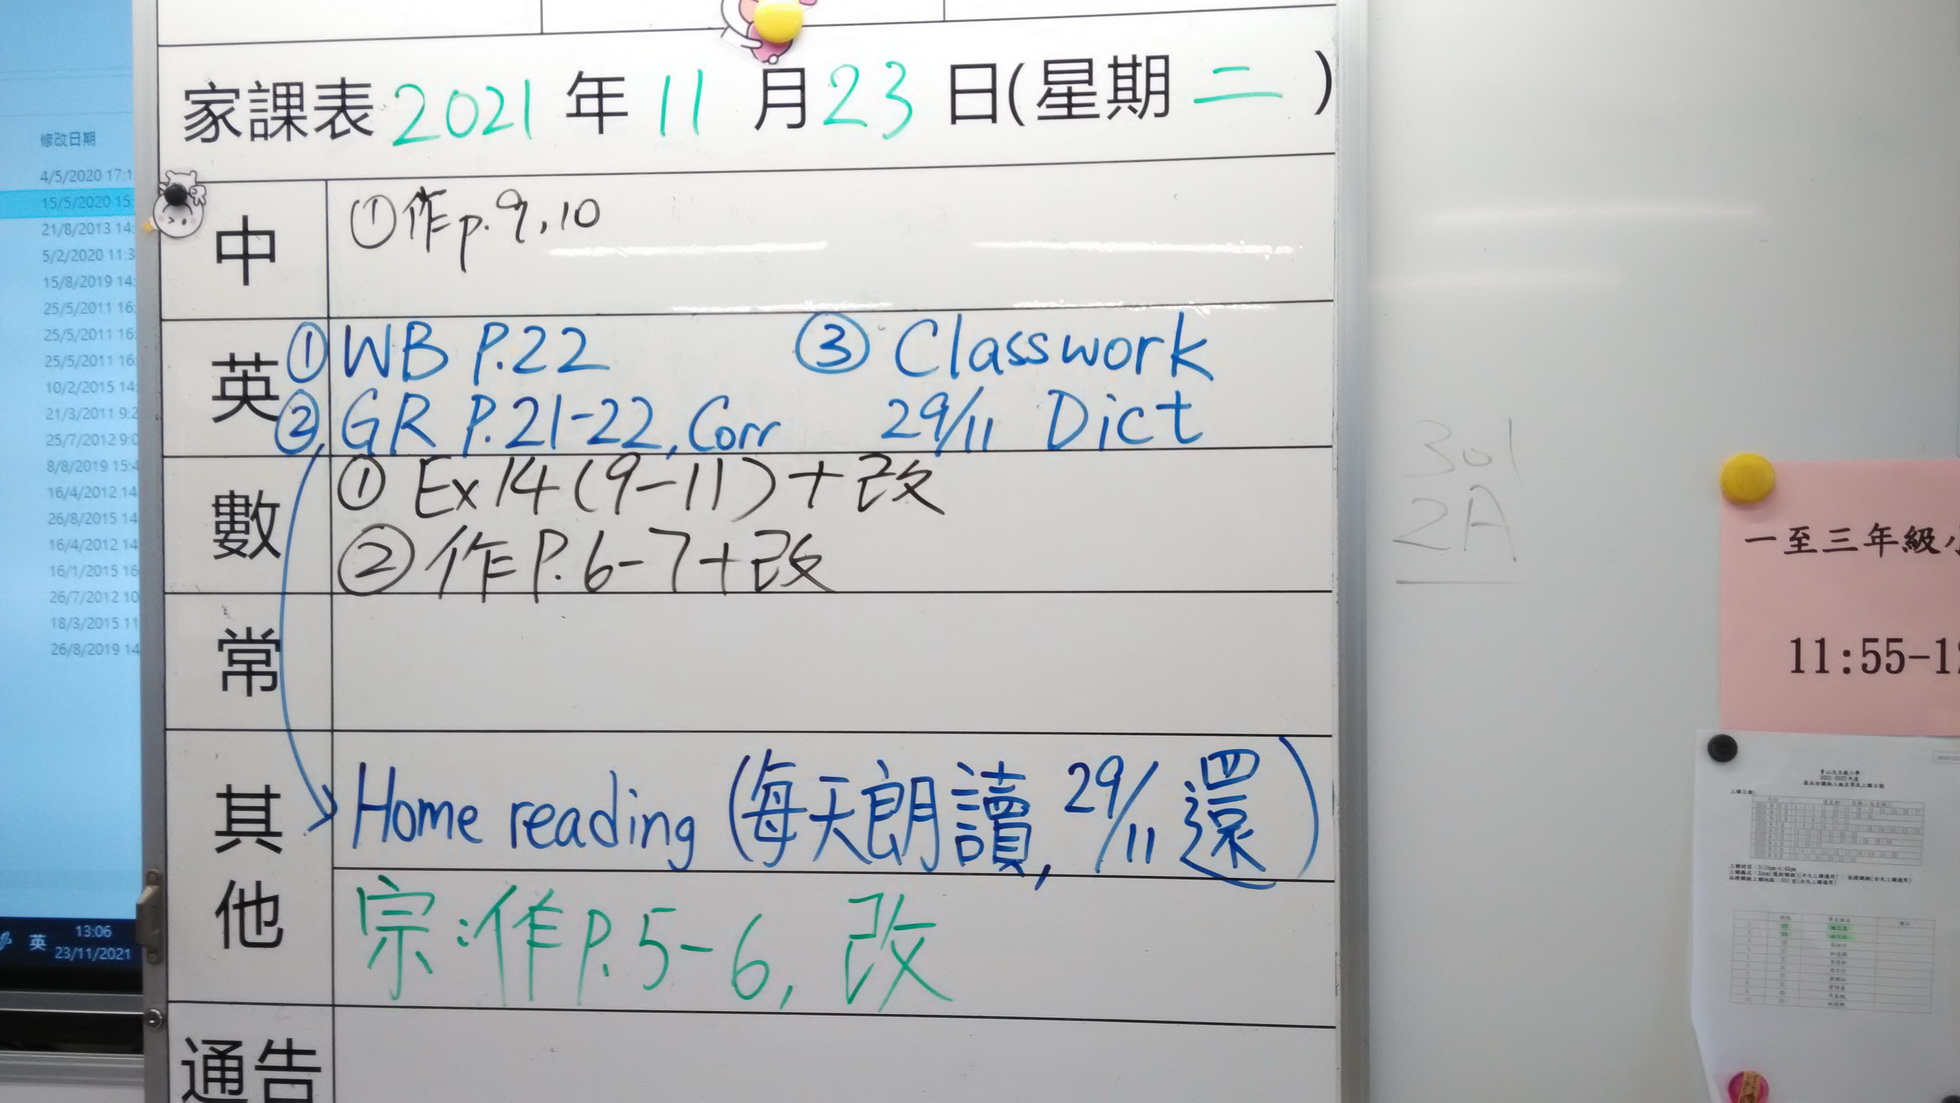 家課表 2021 年 11 月 23 日(星期 二 )
中
①作p.9,10
英
①WB P.22
②GR P.21-22, Corr
③ Classwork
29/11 Dict
數
① Ex 14 (9-11) + 改
② 作P.6-7+改
常
其他
Home reading (每天朗讀, 29/11 還)
宗:作P.5-6, 改
通告
修改日期
4/5/2020 17:1
15/5/2020 15:
21/8/2013 14:
5/2/2020 11:3
15/8/2019 14:
25/5/2011 16:
25/5/2011 16:
25/5/2011 16:
10/2/2015 14:
21/3/2011 9:2
25/7/2012 9:0
8/8/2019 15:4
16/4/2012 14
26/8/2015 14
16/4/2012 14
16/1/2015 16
26/7/2012 10
18/3/2015 11
26/8/2019 14
英
13:06
23/11/2021
301
2A
一至三年級
11:55-1